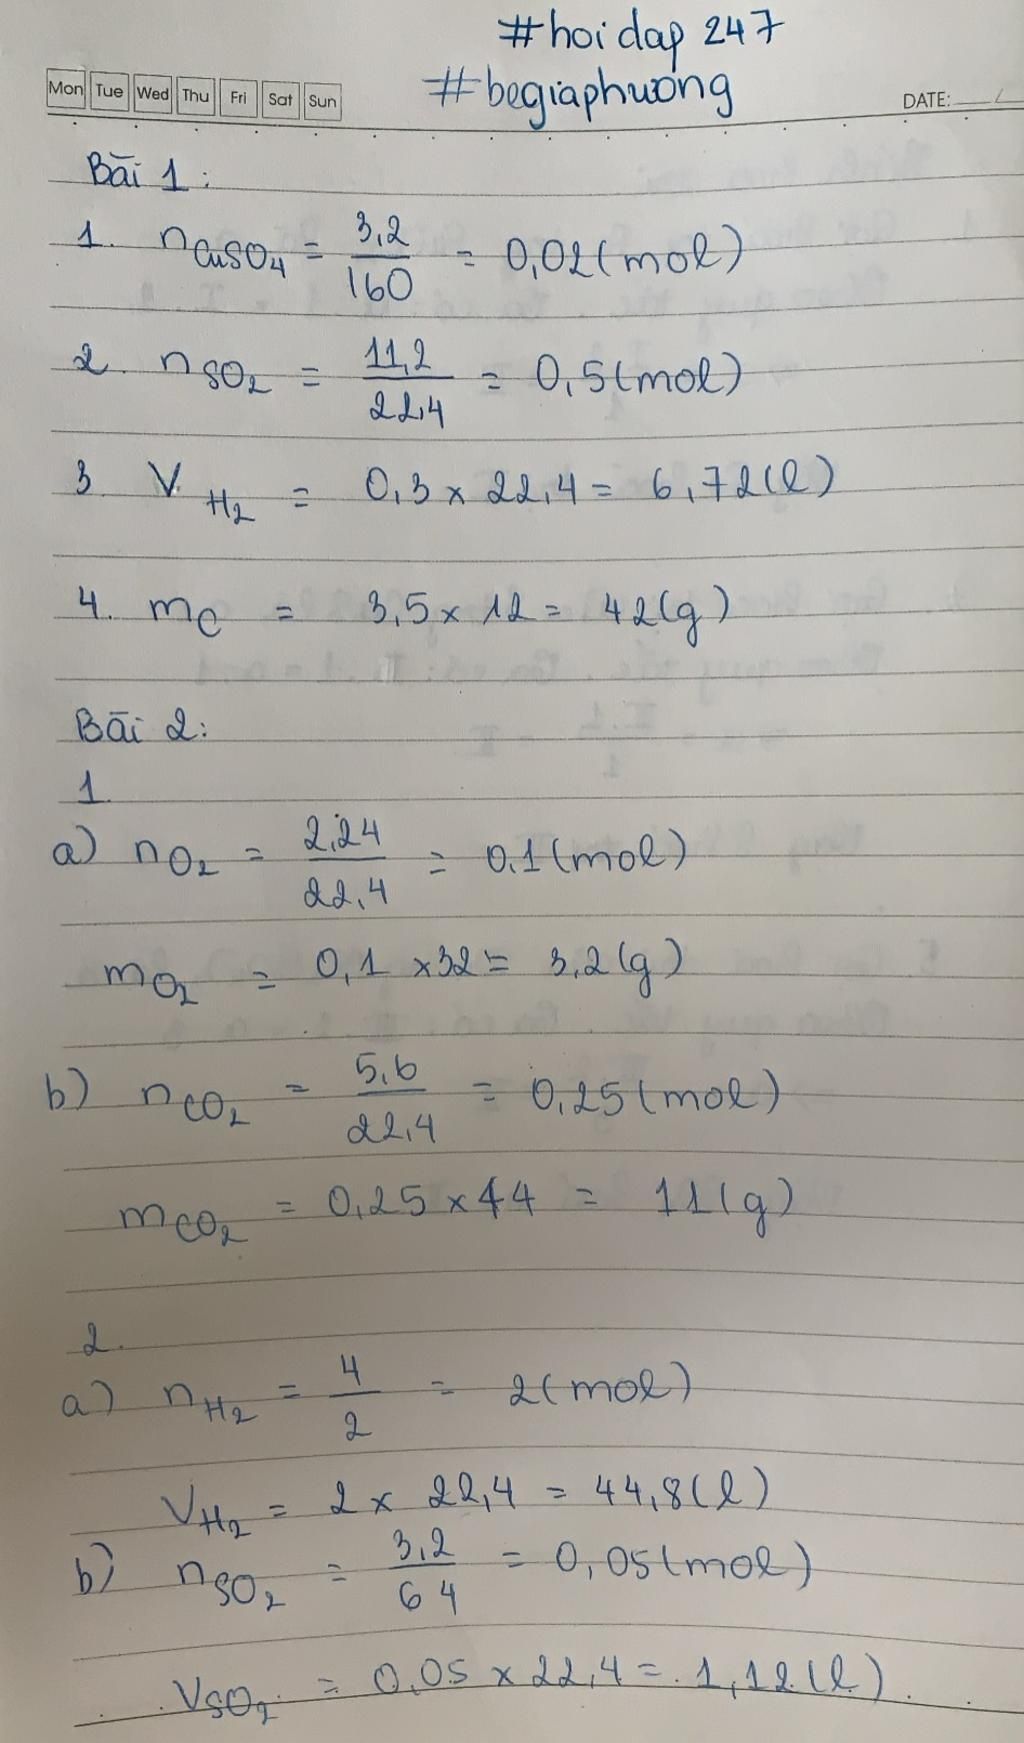 #hoidap 247
Mon Tue Wed Thu Fri Sat Sun
#begiaphuong
DATE:
Bài 1:
1. nCuSO4 = 3,2/160 = 0,02 (mol)
2. nSO2 = 11,2/22,4 = 0,5 (mol)
3 VH2 = 0,3 x 22,4 = 6,72 (l)
4. mC = 3,5 x 12 = 42 (g)
Bài 2:
1.
a) nO2 = 2,24/22,4 = 0,1 (mol)
mO2 = 0,1 x 32 = 3,2 (g)
b) nCO2 = 5,6/22,4 = 0,25 (mol)
mCO2 = 0,25 x 44 = 11 (g)
2.
a) nH2 = 4/2 = 2 (mol)
VH2 = 2 x 22,4 = 44,8 (l)
b) nSO2 = 3,2/64 = 0,05 (mol)
VSO2 = 0,05 x 22,4 = 1,12 (l)